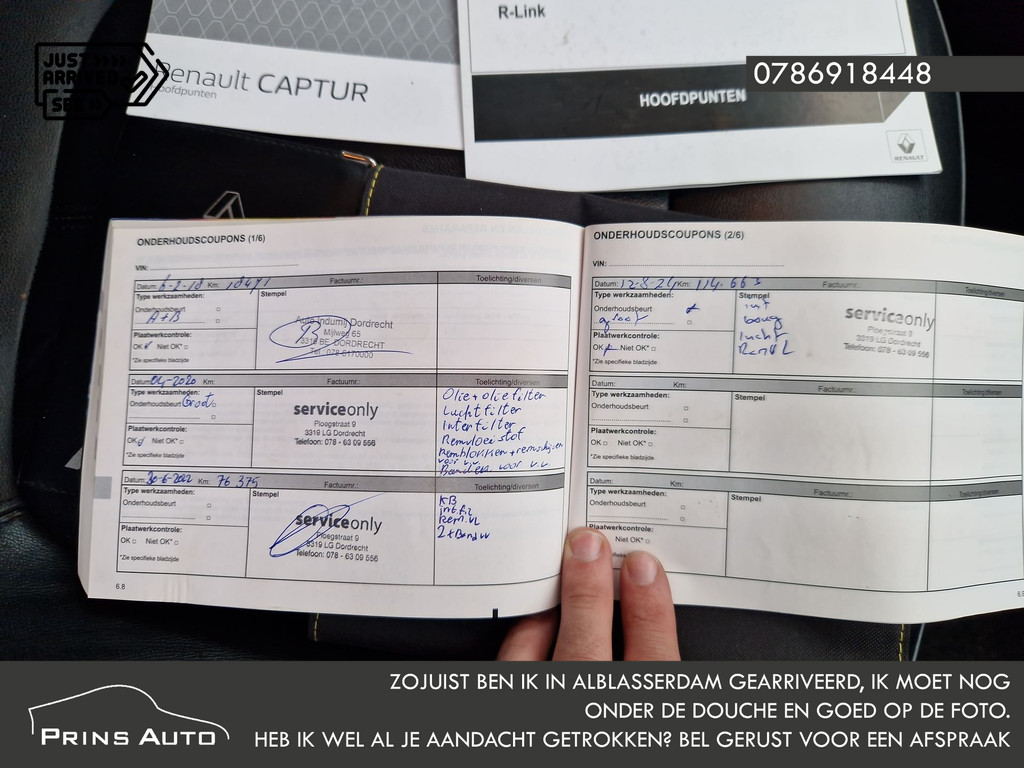 JUST
ARRIVED
SEE
Renault CAPTUR
Hoofdpunten
R-Link
HOOFDPUNTEN
RENAULT
0786918448
ONDERHOUDSCOUPONS (1/6)
VIN:
Datum: 6-2-18 Km: Factuurnr.: Toelichting/diversen
Type werkzaamheden:
Onderhoudsbeurt
A+B
Plaatwerkcontrole:
OK Niet OK*
*Zie specifieke bladzijde
Stempel
Auto Indumij Dordrecht
Mijlweg 65
3316 BE DORDRECHT
Tel.: 078-6170000
Datum: 04-2020 Km: Factuurnr.: Toelichting/diversen
Type werkzaamheden:
Onderhoudsbeurt Groot
Plaatwerkcontrole:
OK Niet OK*
*Zie specifieke bladzijde
Stempel
serviceonly
Ploegstraat 9
3319 LG Dordrecht
Telefoon: 078 - 63 09 556
Olie + oliefilter
Luchtfilter
Interfilter
Remvloeistof
Remblokken + remschijven
voor v.v.
Banden voor v.v.
Datum: 30-6-2022 Km: 76 375 Factuurnr.: Toelichting/diversen
Type werkzaamheden:
Onderhoudsbeurt
Plaatwerkcontrole:
OK Niet OK*
*Zie specifieke bladzijde
Stempel
serviceonly
Ploegstraat 9
3319 LG Dordrecht
Telefoon: 078 - 63 09 556
KB
int.fil
Rem.VL
2x Band VV
6.8
ONDERHOUDSCOUPONS (2/6)
VIN:
Datum: 12-8-24 Km: 114.663 Factuurnr.: Toelichting/diversen
Type werkzaamheden:
Onderhoudsbeurt
groot
Plaatwerkcontrole:
OK Niet OK*
*Zie specifieke bladzijde
Stempel
int
boug
lucht
Rem VL
serviceonly
Ploegstraat 9
3319 LG Dordrecht
Telefoon: 078 - 63 09 556
Datum: Km: Factuurnr.: Toelichting/diversen
Type werkzaamheden:
Onderhoudsbeurt
Plaatwerkcontrole:
OK Niet OK*
*Zie specifieke bladzijde
Stempel
Datum: Km: Factuurnr.: Toelichting/diversen
Type werkzaamheden:
Onderhoudsbeurt
Plaatwerkcontrole:
OK Niet OK*
*Zie specifieke bladzijde
Stempel
ZOJUIST BEN IK IN ALBLASSERDAM GEARRIVEERD, IK MOET NOG
ONDER DE DOUCHE EN GOED OP DE FOTO.
HEB IK WEL AL JE AANDACHT GETROKKEN? BEL GERUST VOOR EEN AFSPRAAK
PRINS AUTO